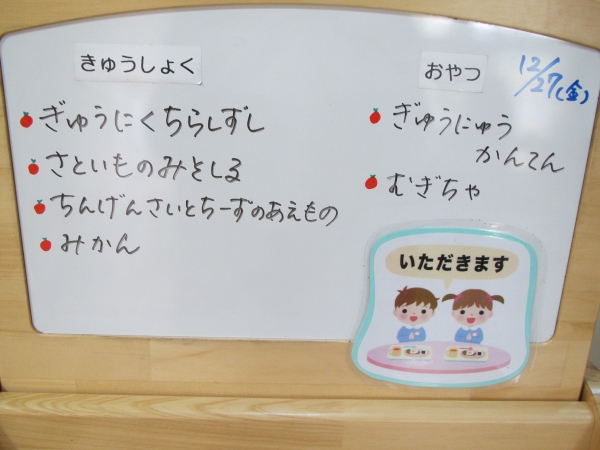 きゅうしょく
ぎゅうにくちらしずし
さといものみそしる
ちんげんさいとちーずのあえもの
みかん
おやつ
12/27(金)
ぎゅうにゅう
かんてん
むぎちゃ
いただきます